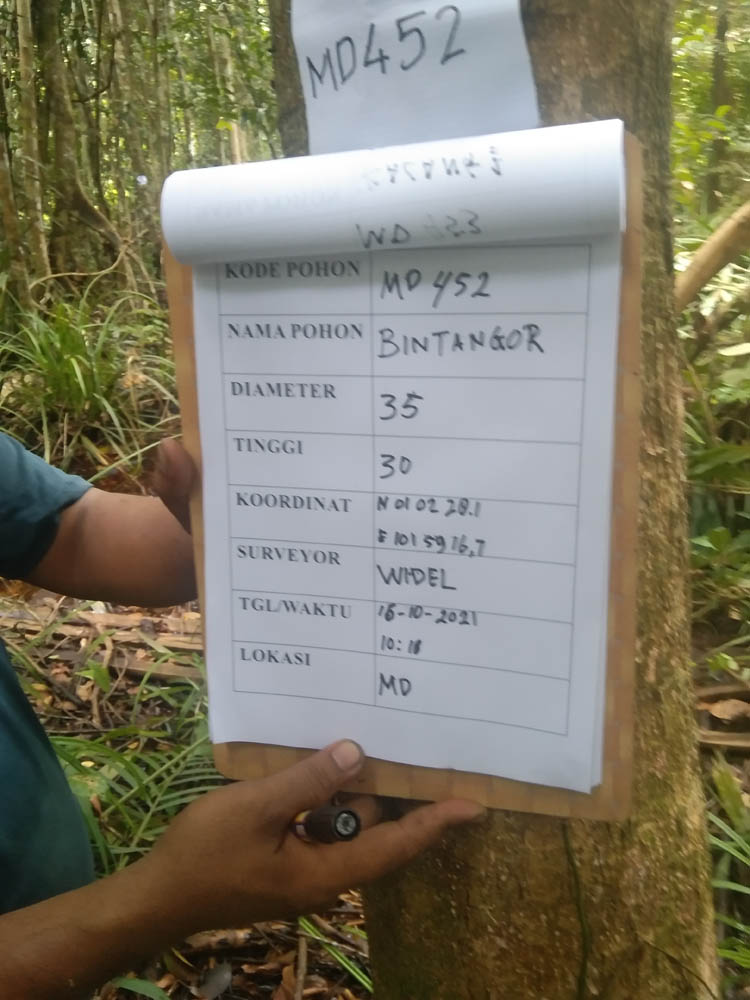 MD452
KODE POHON MD 452
NAMA POHON BINTANGOR
DIAMETER 35
TINGGI 30
KOORDINAT N 01 02 28.1
E 101 59 16,7
SURVEYOR WIDEL
TGL/WAKTU 16-10-2021
10:18
LOKASI MD